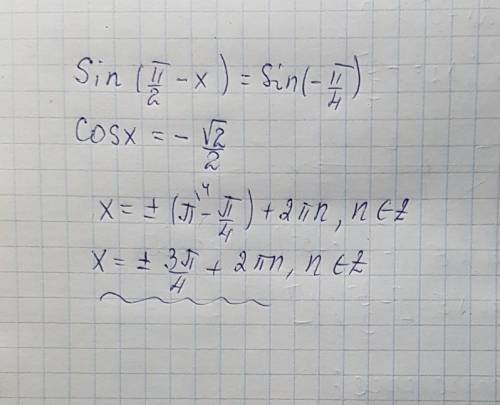 Sin (π/2 - x) = Sin(-π/4)
Cosx = - √2/2
x = ± (π\4 - π/4) + 2πn, n ∈ Z
x = ± 3π/4 + 2πn, n ∈ Z